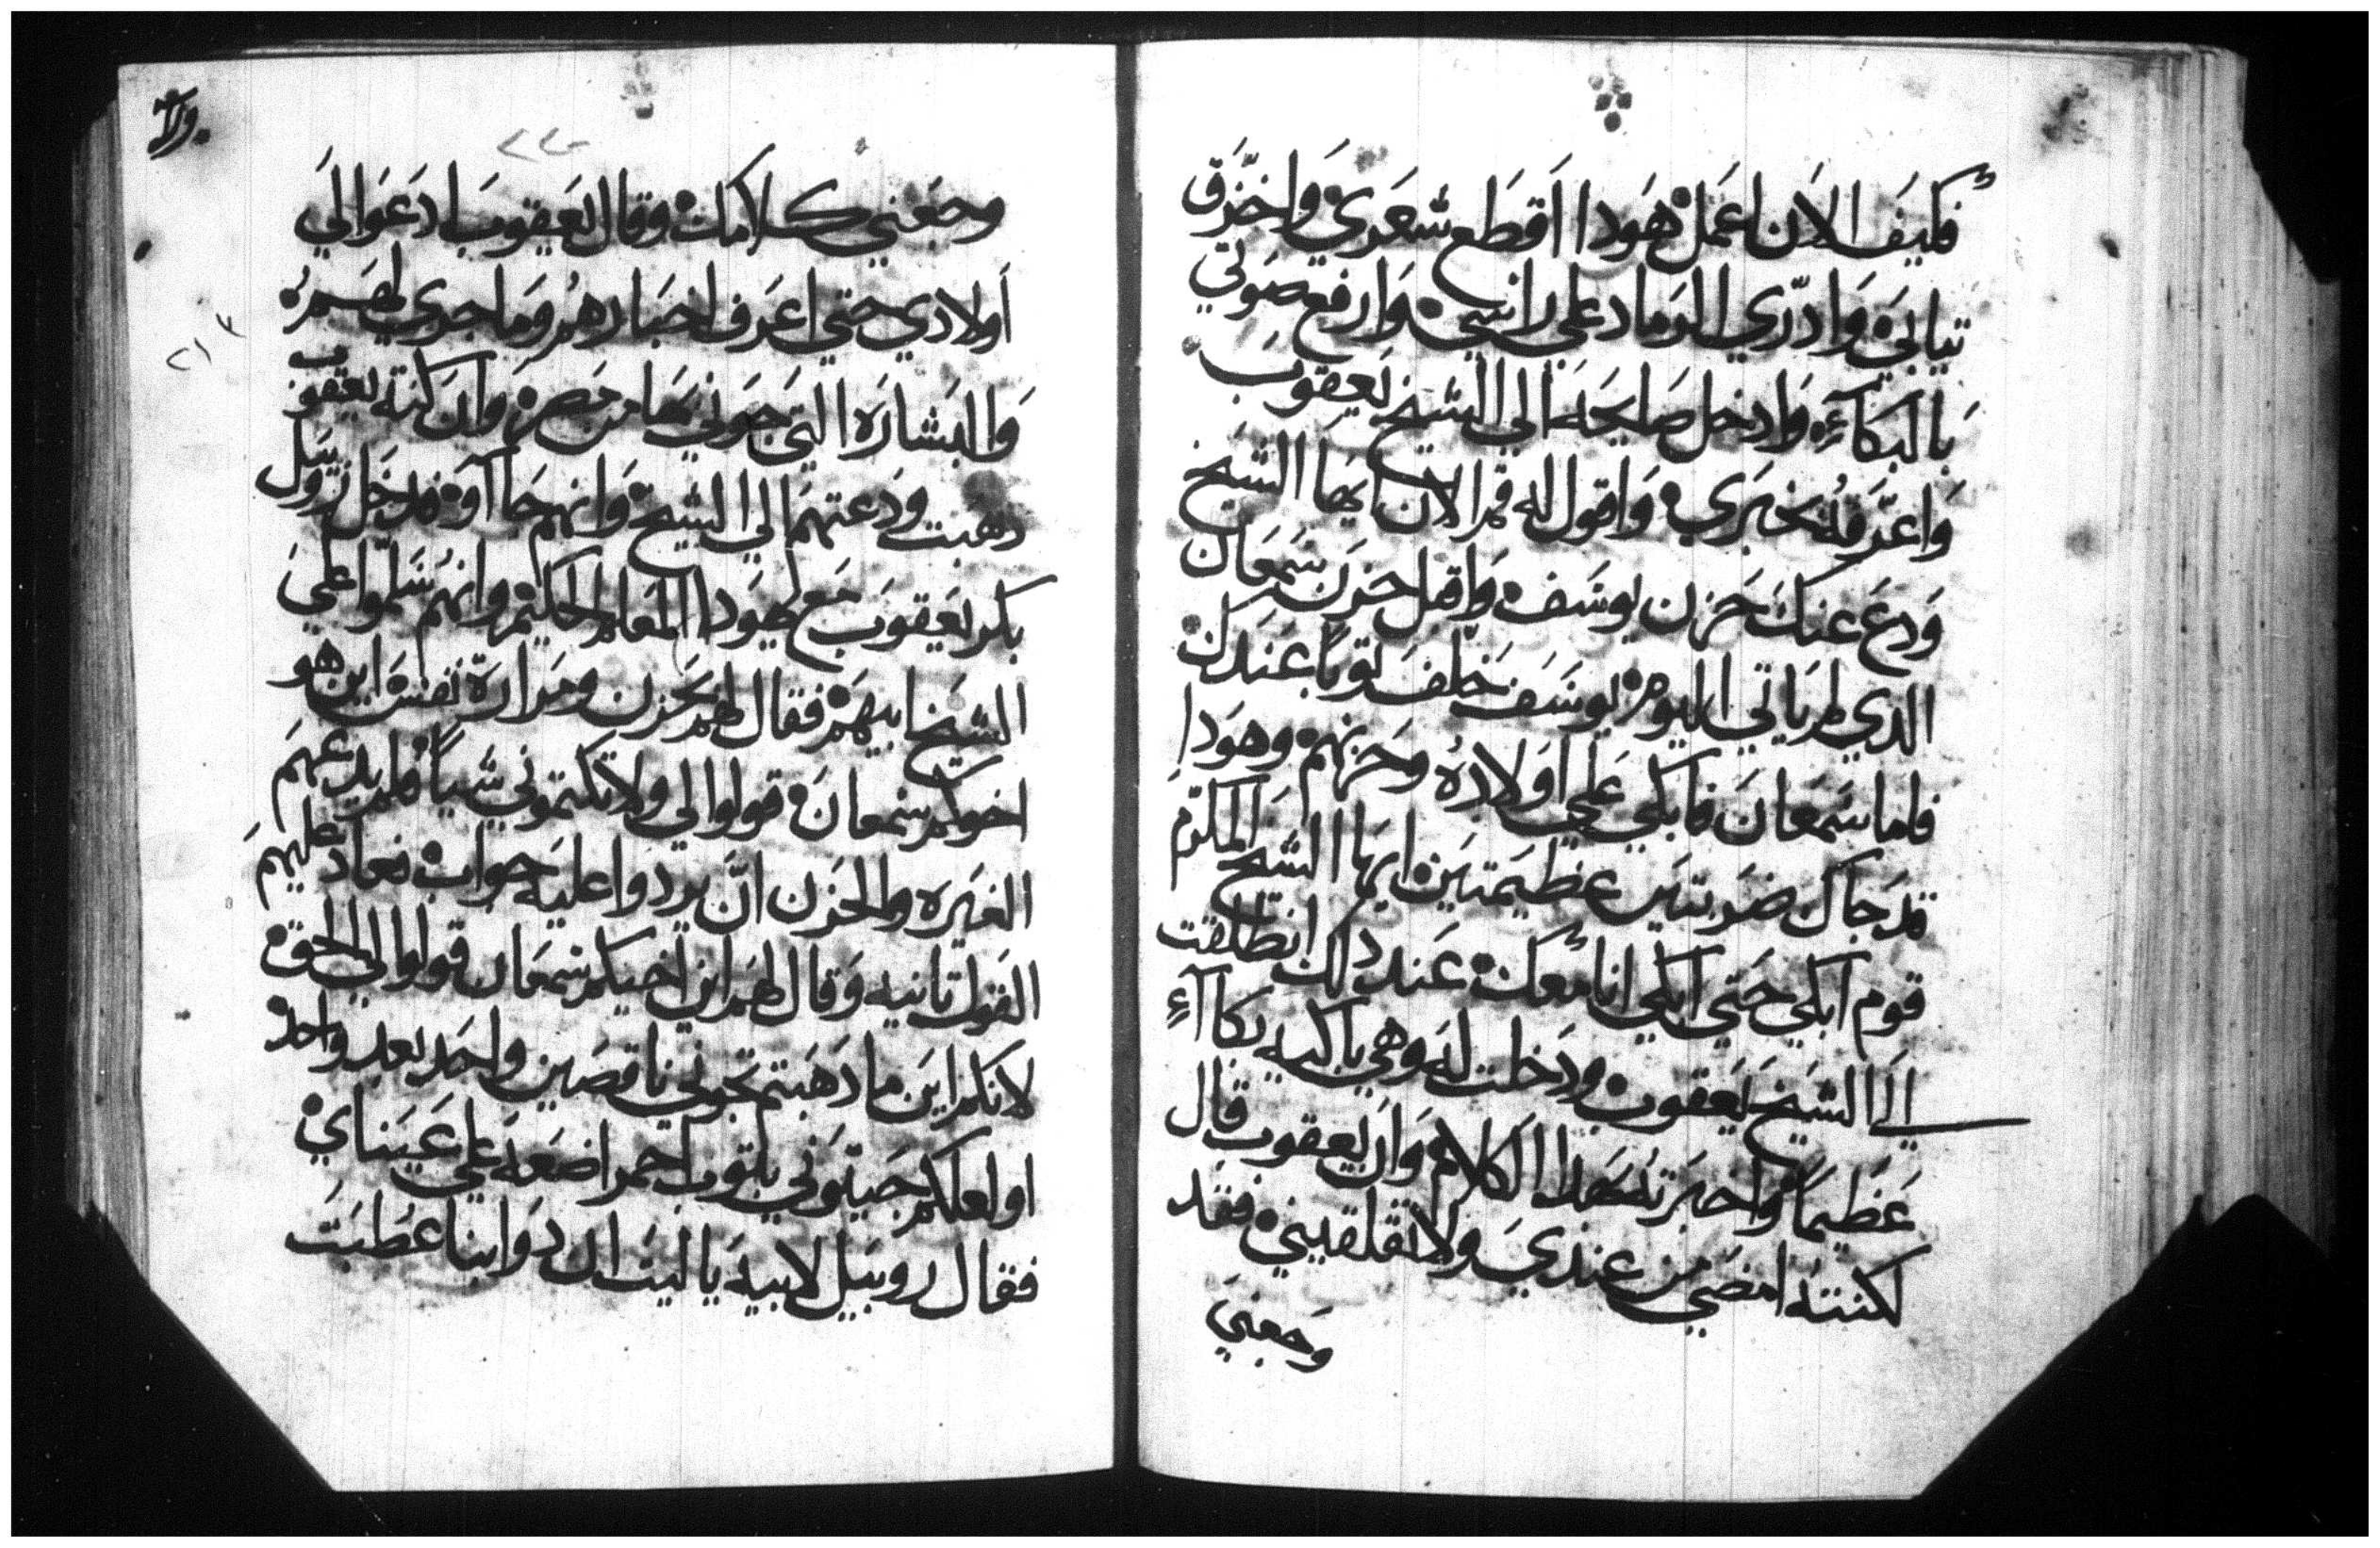 فكيف الان اعمل هودا اقطع شعري واخزق
تيابي وادري الرماد علي راسي وارفع صوتي
بالبكآء وادخل صايحه الي الشيخ يعقوب
واعرفه بخبري واقول له قم الان ايها الشيخ
ودع عنك حزن يوسف واقبل حزن سمعان
الدي لم ياتي اليوم يوسف خلف توبا عندك
فاما سمعان فابكي علي اولاده وحزنهم وهودا
قد جاك ضربتين عظيمتين ايها الشيخ المكرم
قوم ابكي حتي ابكي انا معك عند دلك انطلقت
الي الشيخ يعقوب ودخلت له وهي باكيه بكاآء
عظيما واخبرته بهدا الكلام وان يعقوب قال
لكنته امضي من عندي ولا تقلقيني فقد
وجعني
وجعني كلامك وقال يعقوب ادعوا لي
اولادي حتي اعرف اخبارهم وما جري لهم
والبشاره التي جوني بها من مصر وان كنة يعقوب
دهبت ودعتهم الي الشيخ وانهم جاآوه فدخل روبيل
بكر يعقوب مع يهودا المعلم الحكيم وانهم سلموا علي
الشيخ ابيهم فقال لهم بحزن ومرارة نفس اين هو
اخوكم سمعان قولوا لي ولا تكتموني شيا فلم يدعهم
الغيره والحزن ان يردوا عليه جواب فعاد عليهم
القول تانيه وقال لهم اين اخيكم سمعان قولوا لي الحق
لانكم اين ما دهبتم تجوني ناقصين واحد بعد واحد
او لعلكم جيتوني بتوب احمر اضعه علي عيناي
فقال روبيل لابيه يا ليت ال دوابنا عطبت